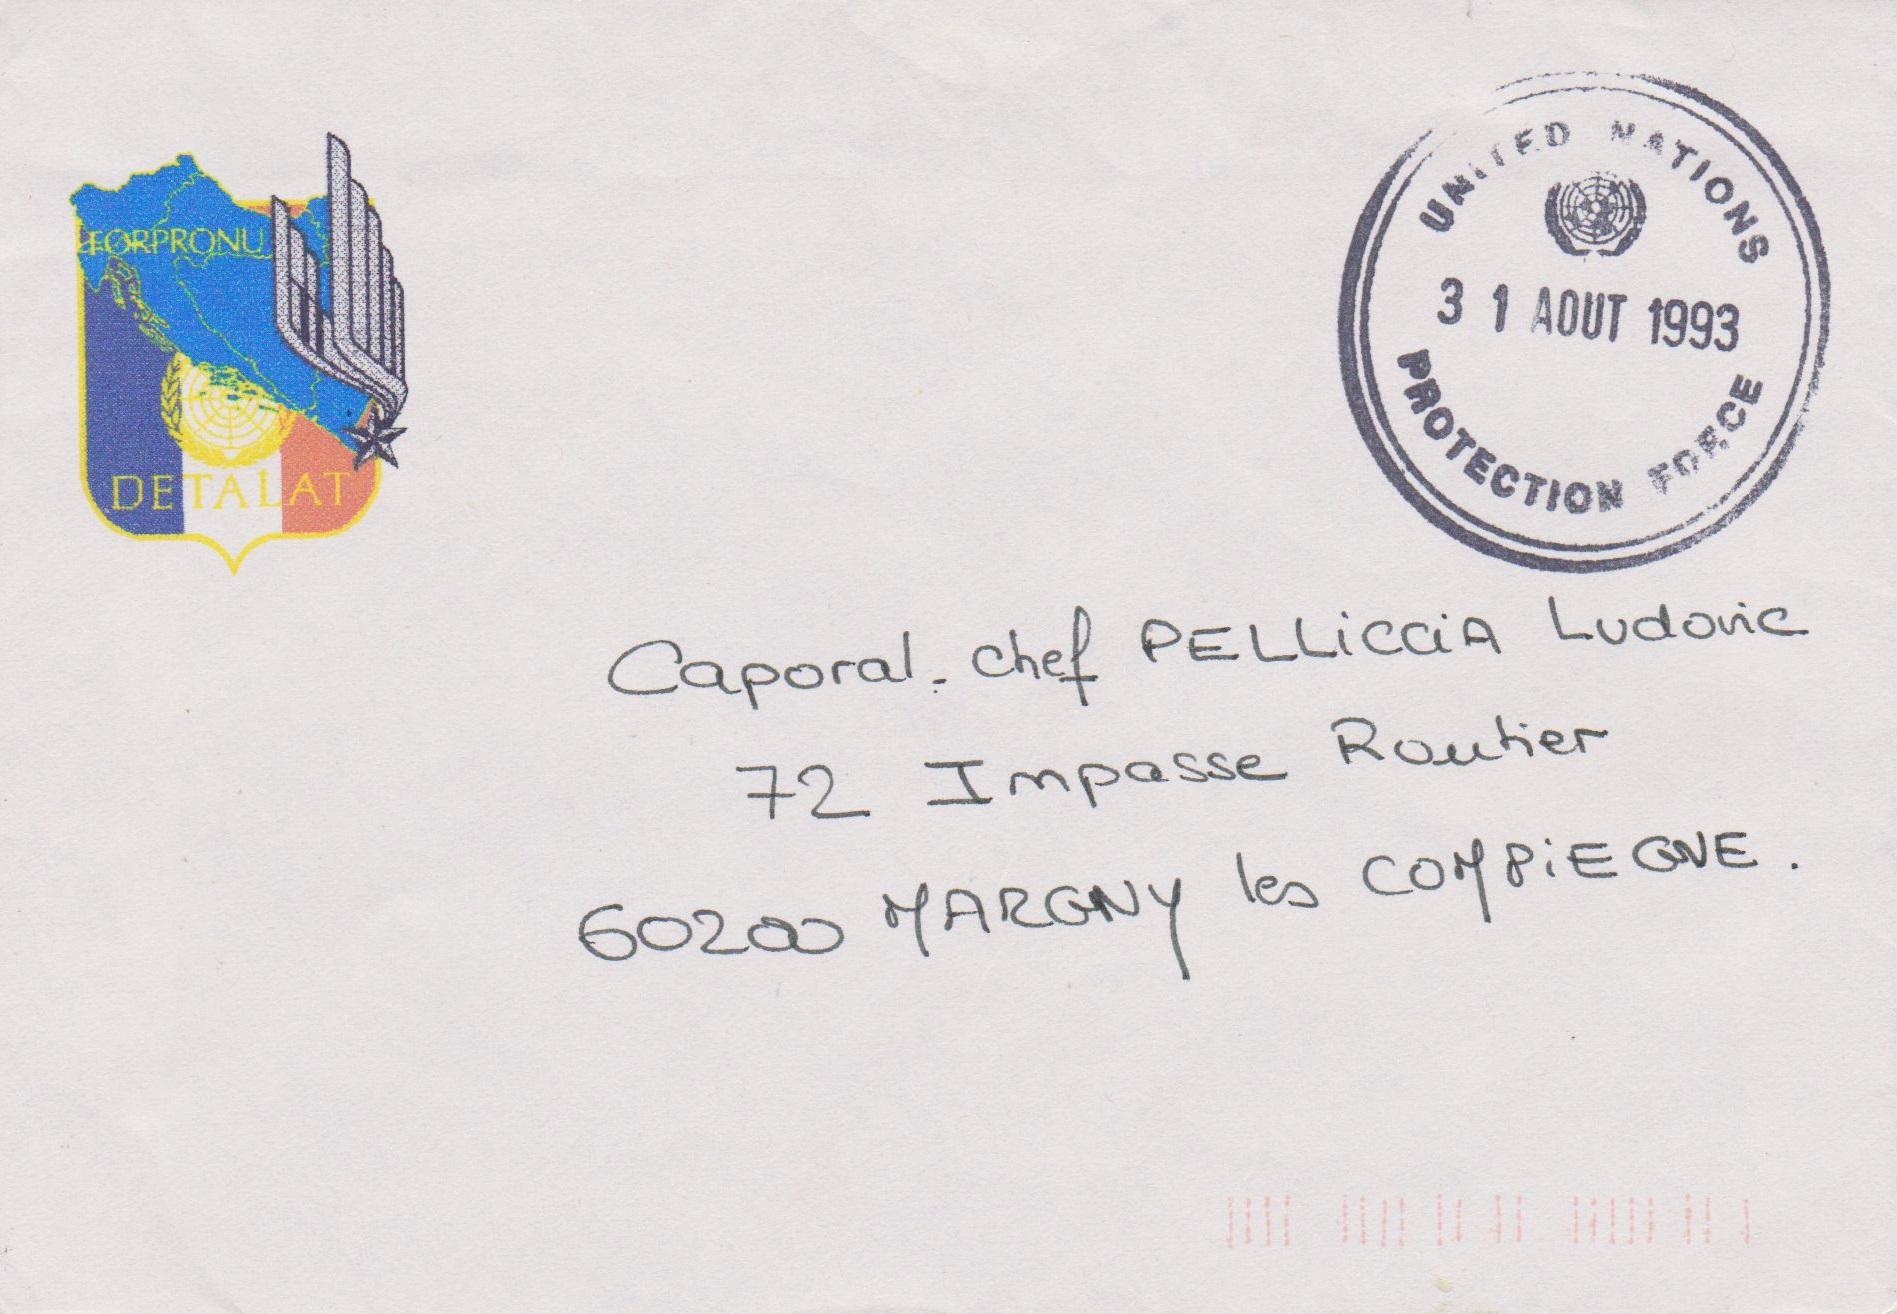 FORPRONU
DETALAT
UNITED NATIONS
31 AOUT 1993
PROTECTION FORCE
Caporal-chef PELLiCCiA Ludovic
72 Impasse Routier
60200 MARGNY les COMPiEGNE.